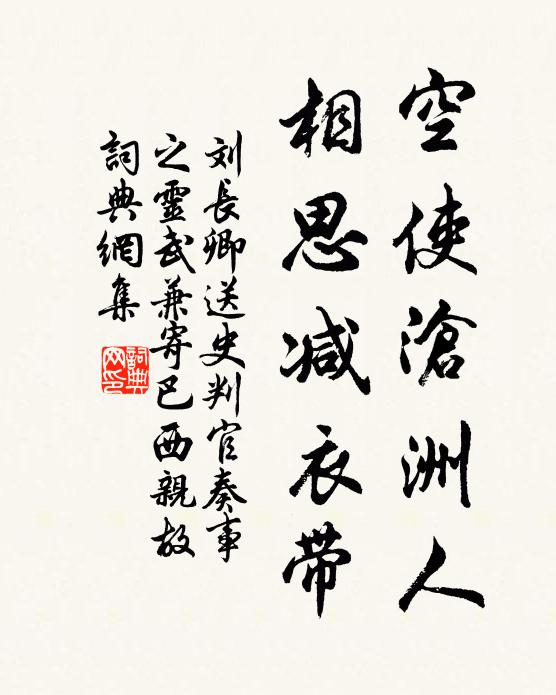 空使滄洲人
相思减衣带
刘長卿送史判官奏事
之靈武兼寄巴西親故
詞典網集
詞典网印